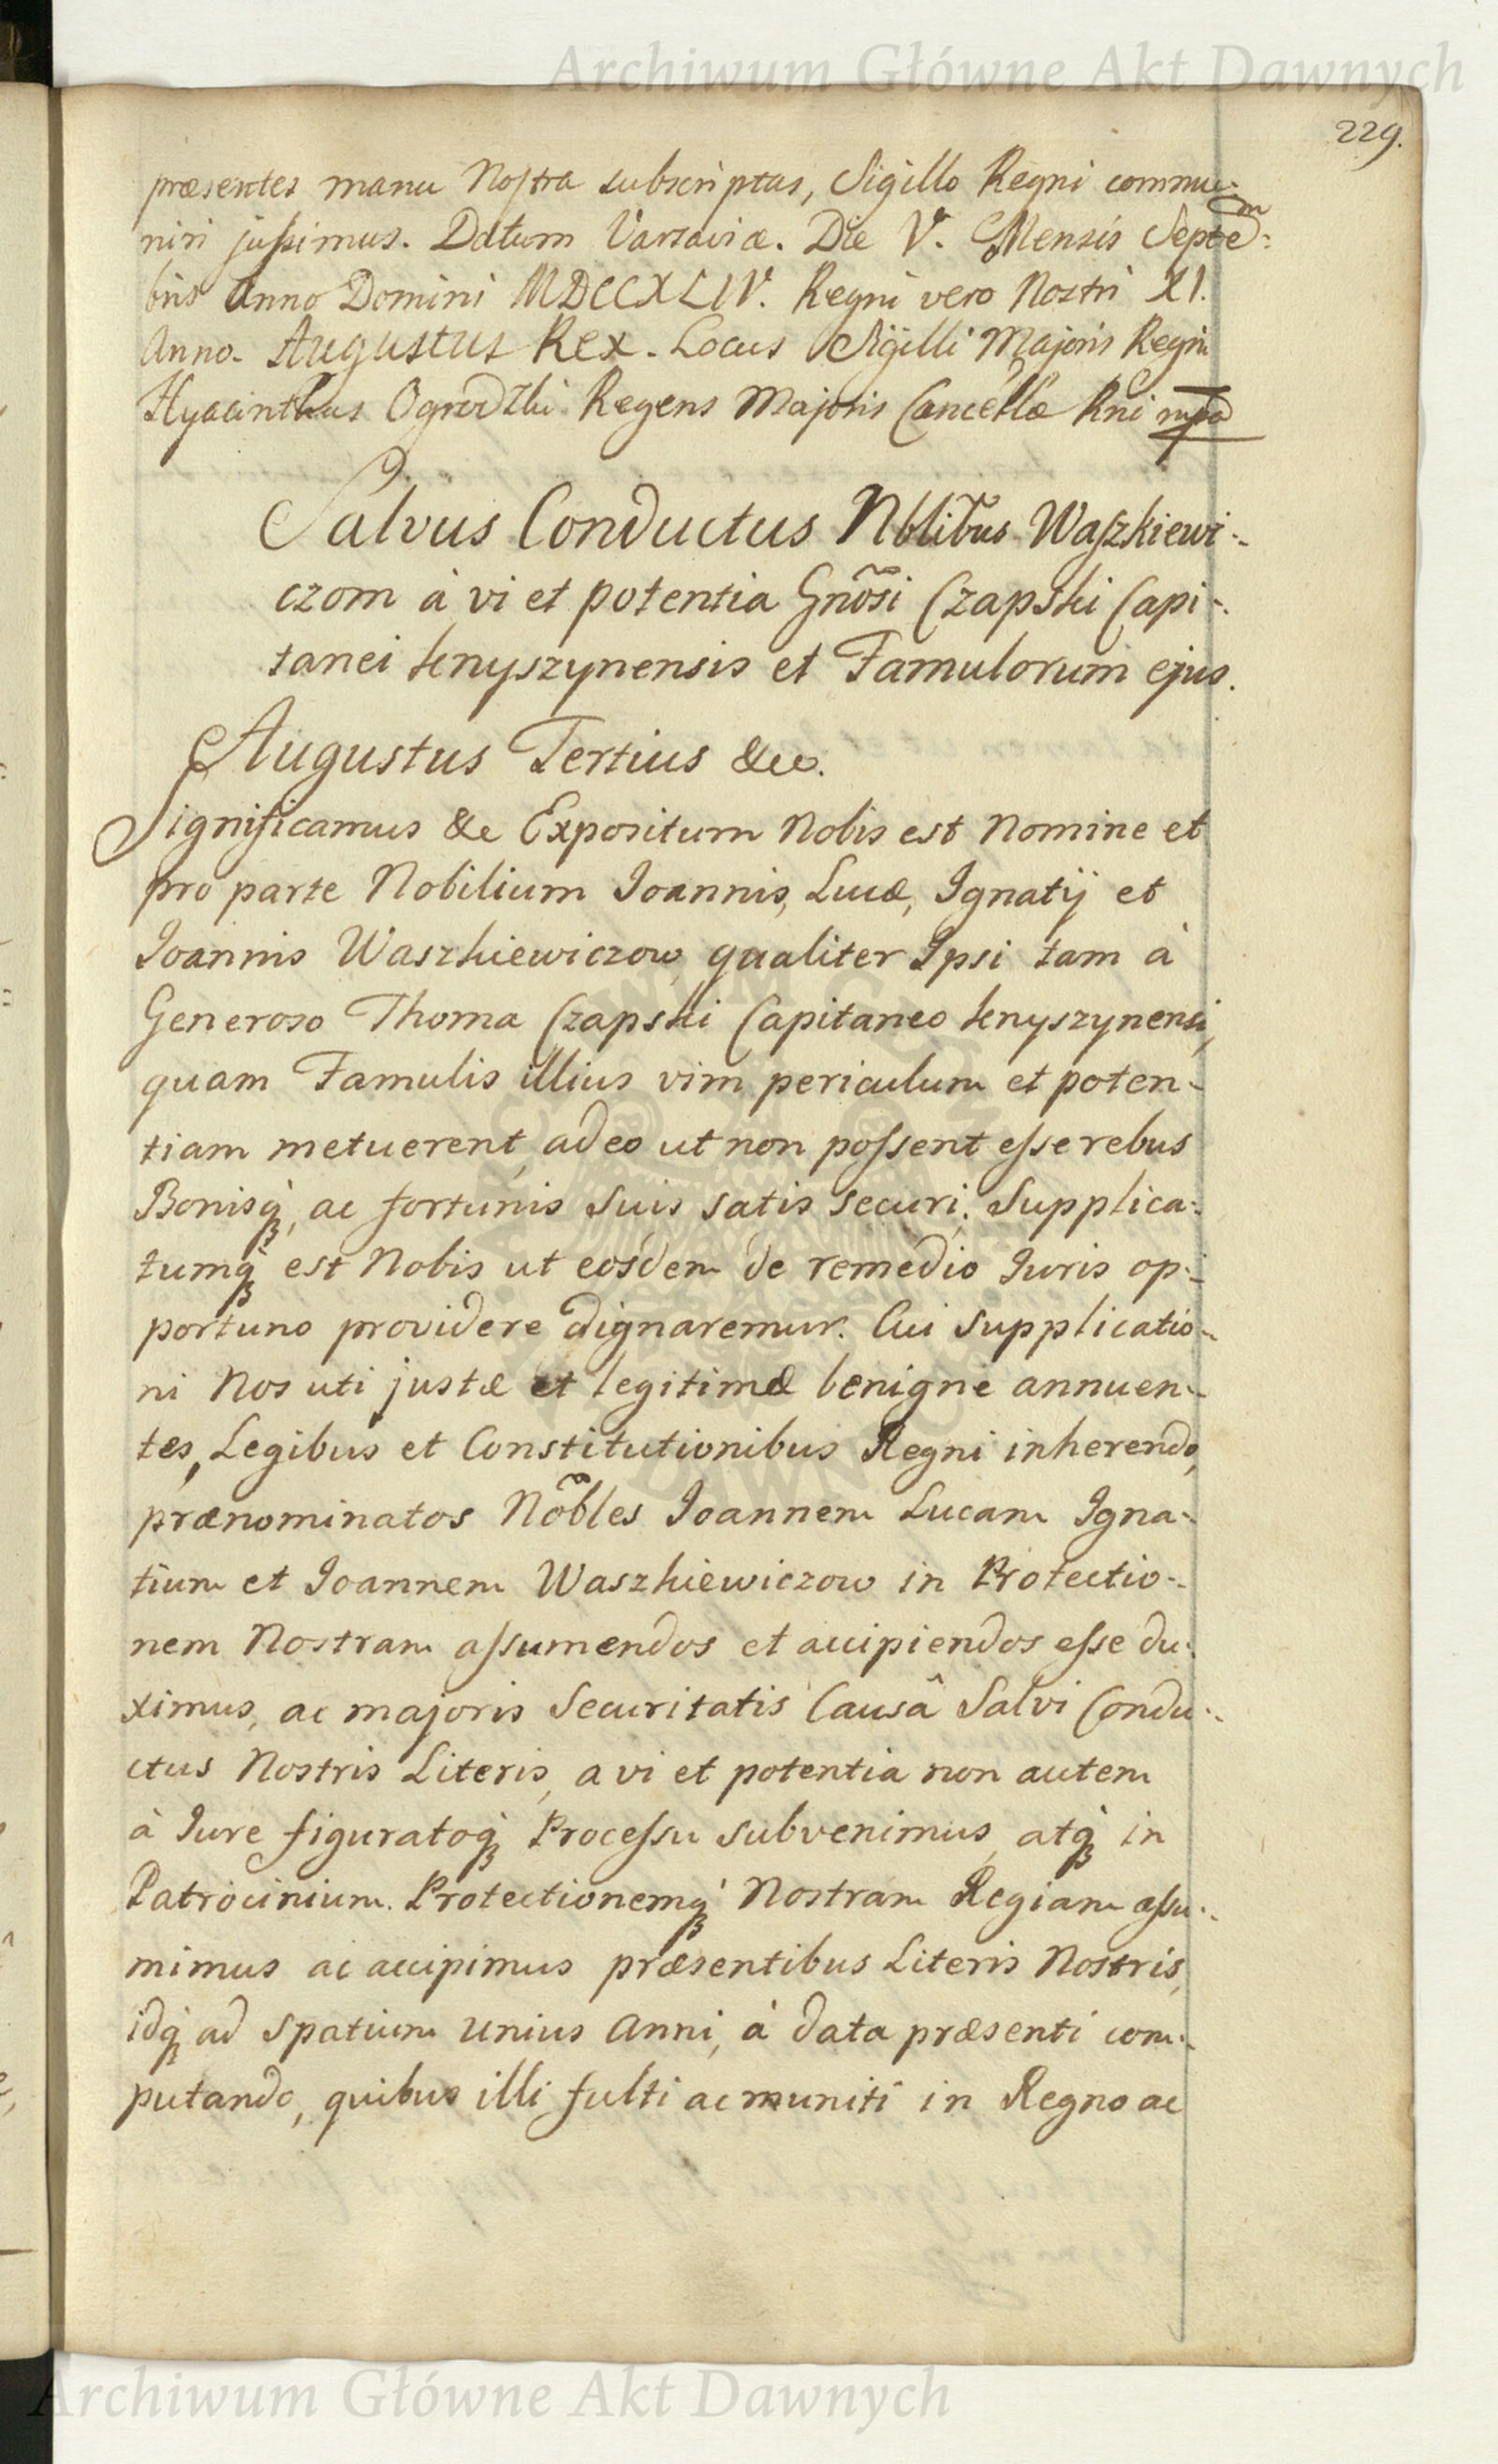 Archiwum Główne Akt Dawnych
229.
præsentes manu Nostra subscriptas, Sigillo Regni commu-
niri jussimus. Datum Varsaviæ. Die V. Mensis Septem-
bris Anno Domini MDCCXLIV. Regni vero Nostri XI.
Anno. Augustus Rex. Locus Sigilli Majoris Regni
Hyacinthus Ogrodzki Regens Majoris Cancellæ Rni mpa
Salvus Conductus Nblibus Waszkiewi-
czom à vi et potentia Gnosi Czapski Capi-
tanei knyszynensis et Famulorum ejus.
Augustus Tertius &c.
Significamus &c Expositum Nobis est Nomine et
pro parte Nobilium Joannis, Lucæ, Ignatij et
Joannis Waszkiewiczow, qualiter Ipsi tam à
Generoso Thoma Czapski Capitaneo knyszynensi,
quam Famulis illius vim periculum et poten-
tiam metuerent, adeo ut non possent esse rebus
Bonisq, ac fortunis suis satis securi; Supplica-
tumq est Nobis ut eosdem de remedio Juris op-
portuno providere dignaremur. Cui supplicatio-
ni Nos uti justæ et legitimæ benigne annuen-
tes, Legibus et Constitutionibus Regni inherendo,
prænominatos Nobles Joannem Lucam Igna-
tium et Joannem Waszkiewiczow in Protectio-
nem Nostram assumendos et accipiendos esse du-
ximus, ac majoris Securitatis Causâ Salvi Condu-
ctus Nostris Literis, a vi et potentia non autem
à Jure figuratoq Processu subvenimus, atq in
Patrocinium Protectionemq Nostram Regiam assu-
mimus ac accipimus præsentibus Literis Nostris,
idq ad spatium unius Anni, à data præsenti com-
putando, quibus illi fulti ac muniti in Regno ac
Archiwum Główne Akt Dawnych